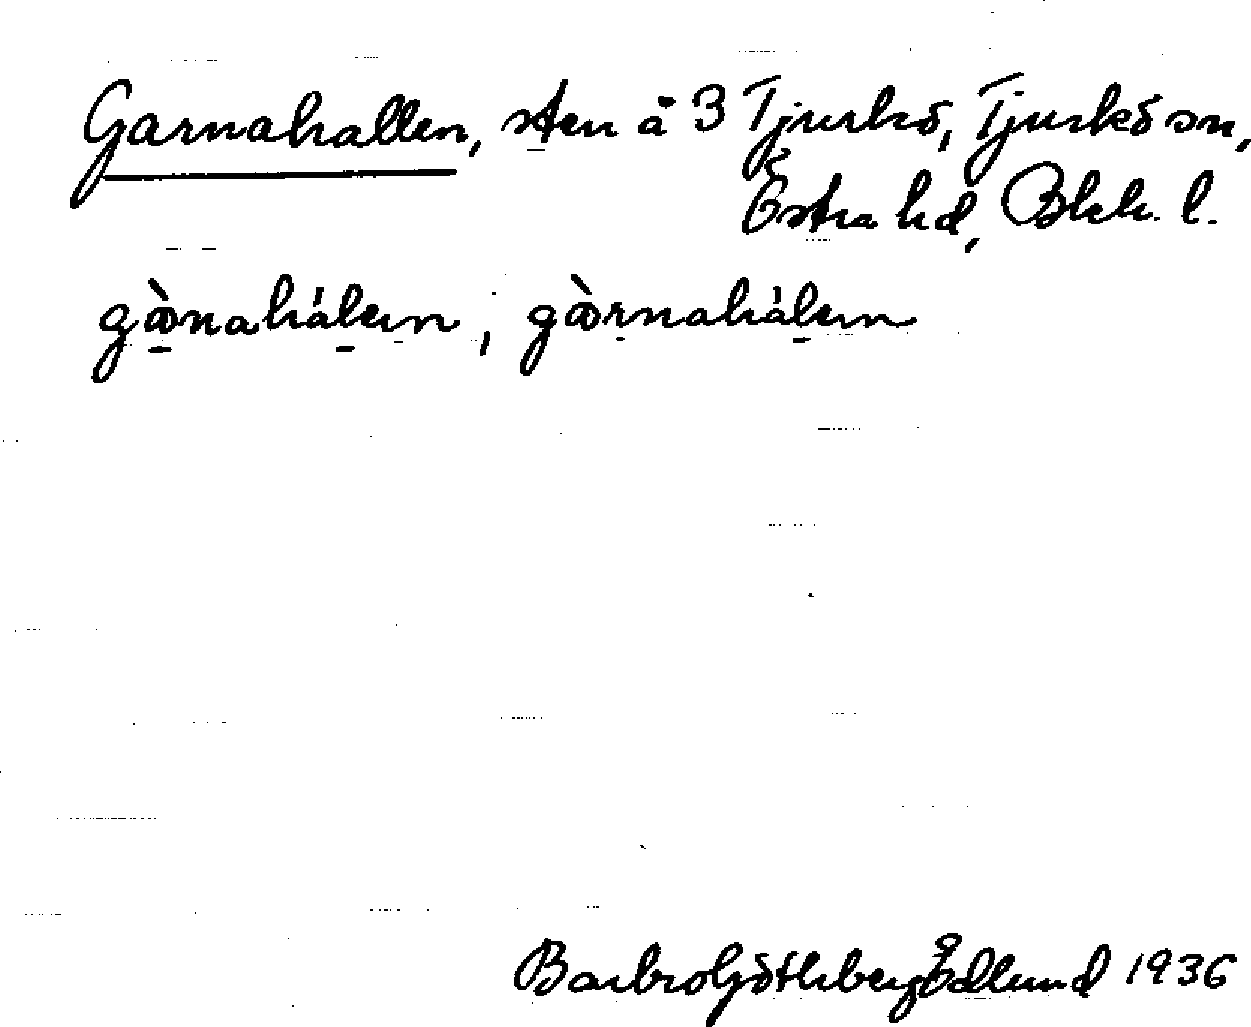 Garnahallen, sten å 3 Tjurkö, Tjurkö sn,
Östra hd, Blek. l.
gànahálen, gàrnahálen
Barbro Götlberg Edlund 1936